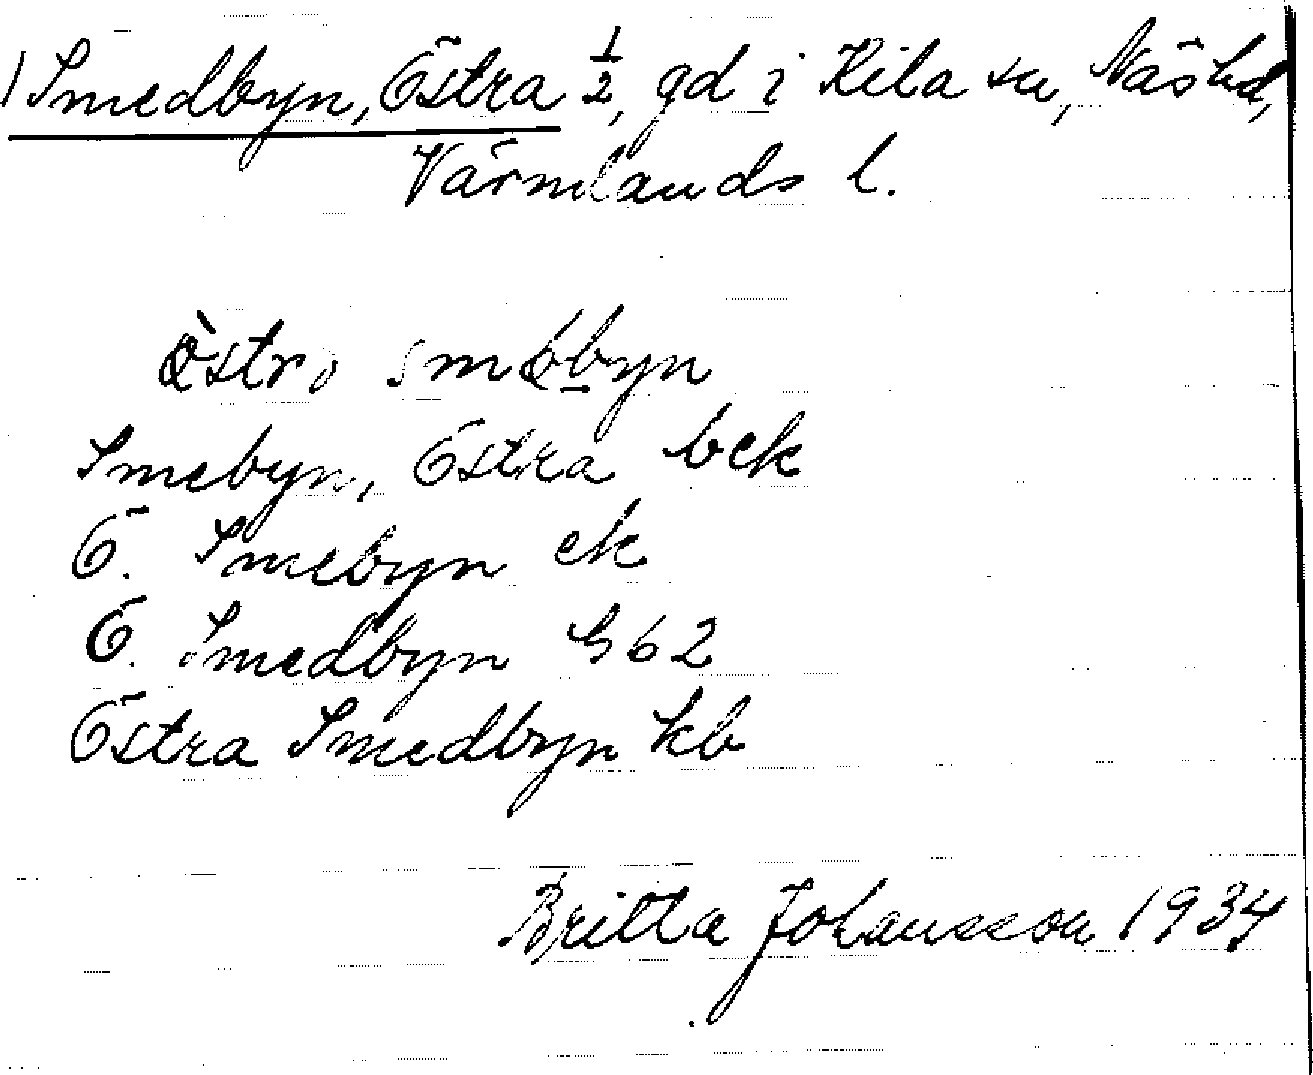 1 Smedbyn, Östra 1/2, gd i Kila sn, Näs hd,
Värmlands l.
smöbyn
Smebyn, Östra bek
Ö. Smebyn ek
Ö. Smedbyn G62
Östra Smedbyn kb
Britta Johansson 1934